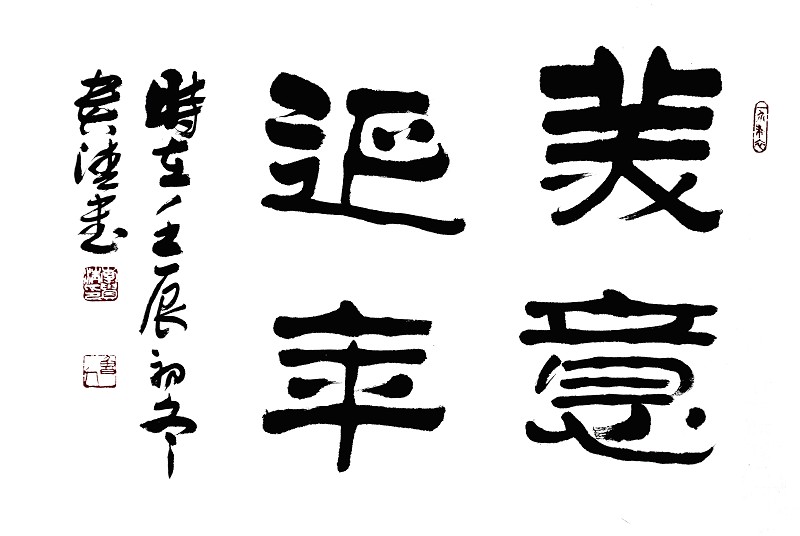 美意
延年
時在壬辰初冬
貴書